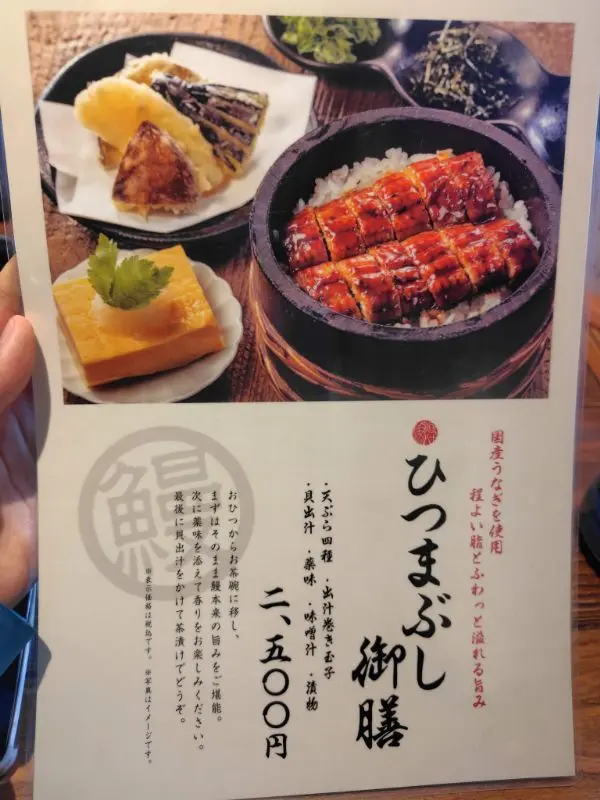 国産うなぎを使用
程よい脂とふわっと溢れる旨み
ひつまぶし
御膳
・天ぷら四種 ・出汁巻き玉子
・貝出汁 ・薬味 ・味噌汁 ・漬物
二、五〇〇円
おひつからお茶碗に移し、
まずはそのまま鰻本来の旨みをご堪能。
次に薬味を添えて香りをお楽しみください。
最後に貝出汁をかけて茶漬けでどうぞ。
※表示価格は税込です。 ※写真はイメージです。
鰻